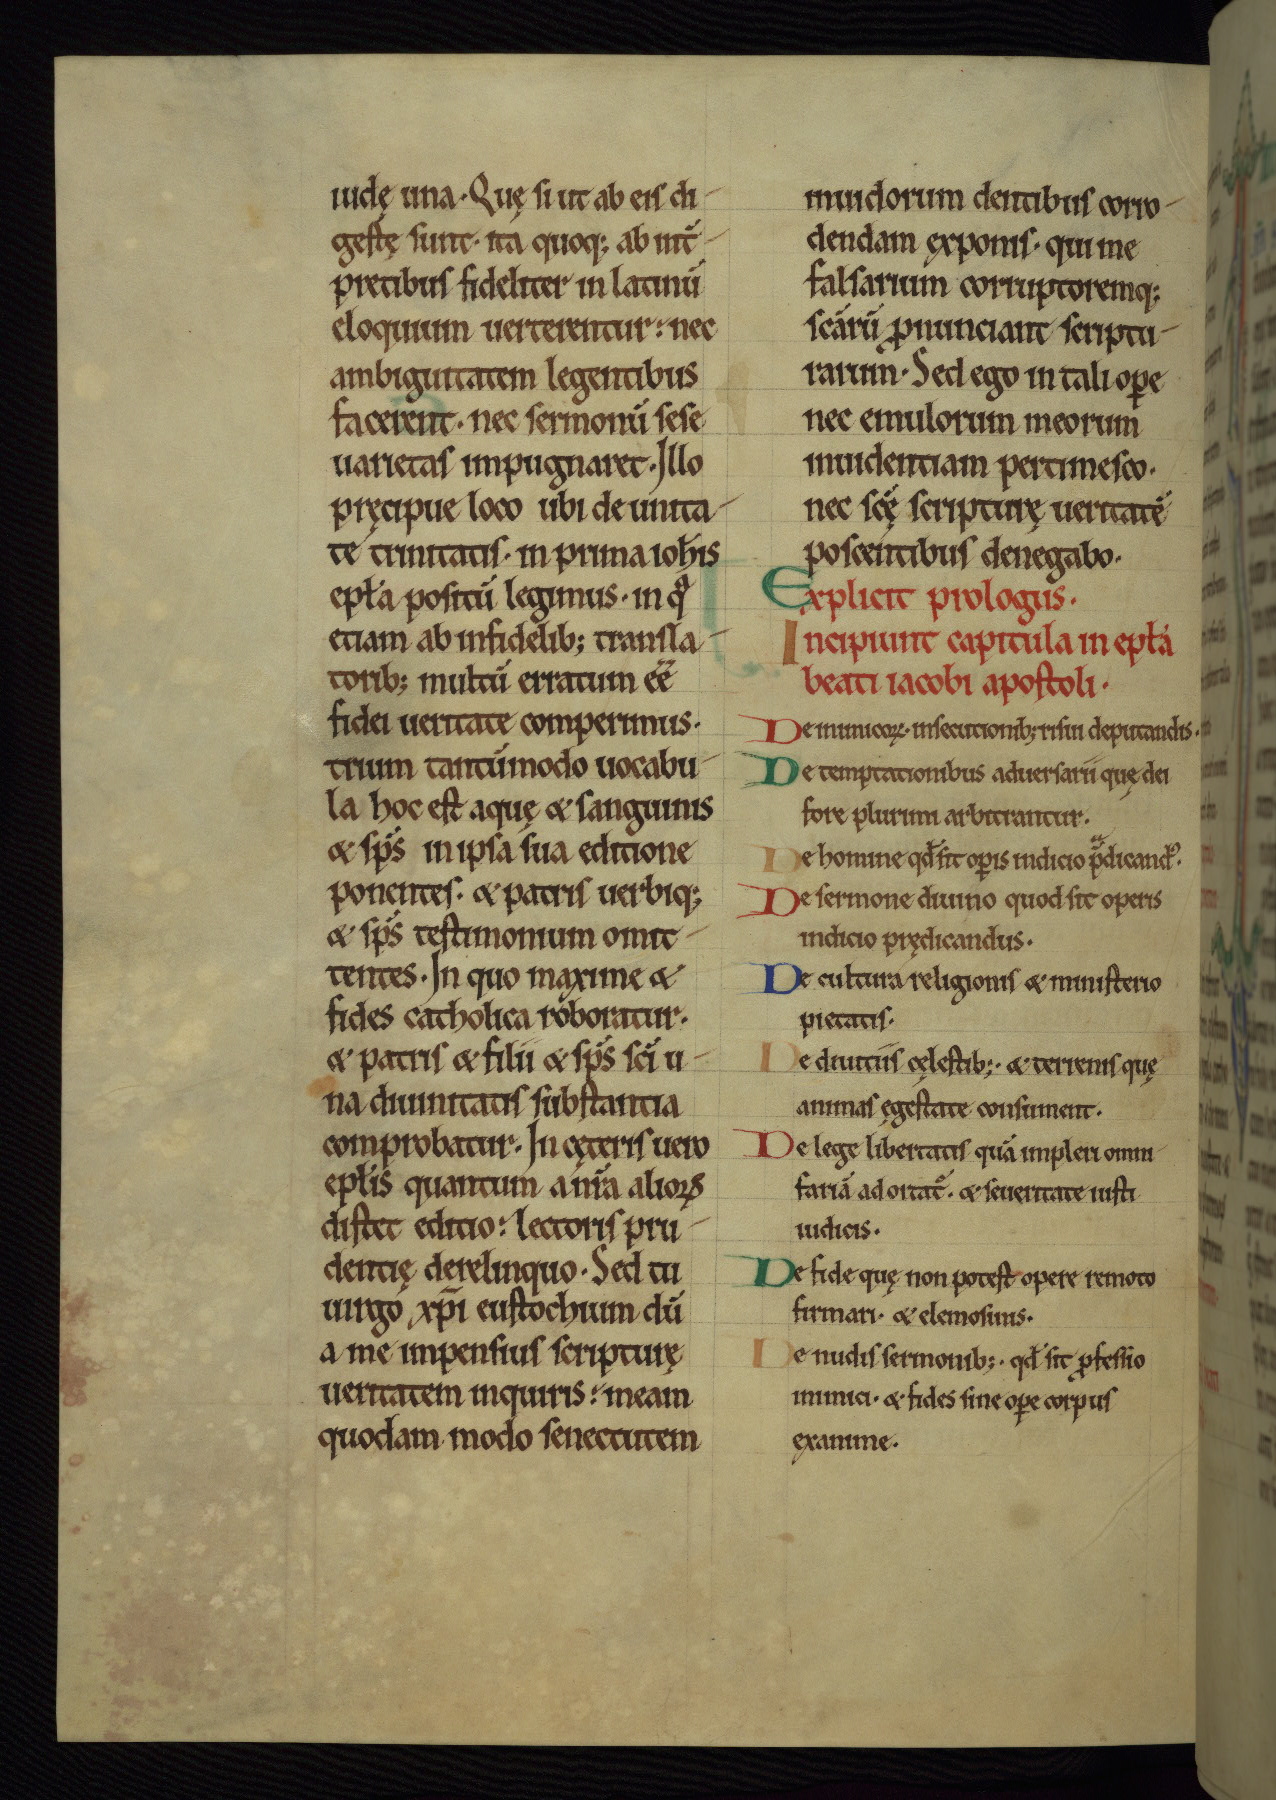 iudę una. Quę si ut ab eis di-
gestę sunt. ita quoq; ab int̄-
pretibus fideliter in latinū
eloquium uerterentur: nec
ambiguitatem legentibus
facerent. nec sermonū sese
uarietas impugnaret. Illo
pręcipue loco ubi de unita-
te trinitatis. in prima ioħis
epła positū legimus. in q̊
etiam ab infidelib; transla-
torib; multū erratum eē
fidei ueritate comperimus.
trium tantūmodo uocabu-
la hoc est aquę & sanguinis
& sps̄ in ipsa sua editione
ponentes. & patris uerbiq;
& sps̄ testimonium omit-
tentes. In quo maxime &
fides catholica roboratur.
& patris & filii & sps̄ sci u-
na diuinitatis substantia
comprobatur. In cęteris uero
epłis quantum a nr̄a alioꝝ
distet editio: lectoris pru-
dentię derelinquo. Sed tu
uirgo xp̄i eustochium dū
a me impensius scripturę
ueritatem inquiris: meam
quodam modo senectutem
inuidorum dentibus corro-
dendam exponis. qui me
falsarium corruptoremq;
scārū ꝓnunciant scriptu-
rarum. Sed ego in tali oꝑe
nec emulorum meorum
inuidentiam pertimesco.
nec scę̄ scripturę ueritatē
poscentibus denegabo.
Explicit prologus.
Incipiunt capitula in epła
beati iacobi apostoli.
De inimicoꝝ. insecutionib; risui deputandis.
De temptationibus aduersarii quę dei
fore plurimi arbitrantur.
De homine qđ sit oꝑis indicio p̄dicand᷒.
De sermone diuino quod sit operis
indicio prędicandus.
De cultura religionis & ministerio
pietatis.
De diuitiis cęlestib;. & terrenis quę
animas ęgestate consument.
De lege libertatis quā impleri omni
fariā adortat̄. & seueritate iusti
iudicis.
De fide quę non potest opere remoto
firmari. & elemosinis.
De nudis sermonib;. qđ sit ꝓfessio
inimici. & fides sine oꝑe corpus
exanime.